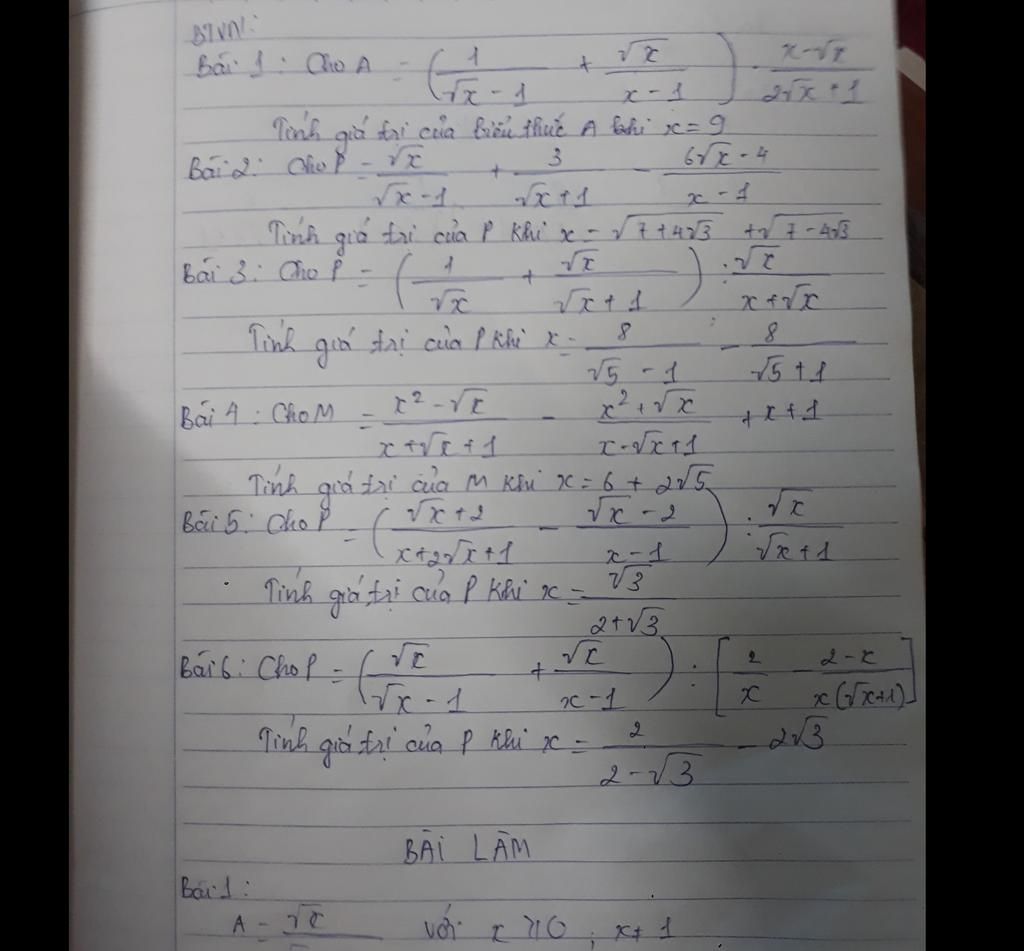 BTVN:
Bài 1: Cho A = (1/(√x - 1) + √x/(x - 1)) · (x - √x)/(2√x + 1)
Tính giá trị của biểu thức A khi x = 9
Bài 2: Cho P = √x/(√x - 1) + 3/(√x + 1) - (6√x - 4)/(x - 1)
Tính giá trị của P khi x = √(7 + 4√3) + √(7 - 4√3)
Bài 3: Cho P = (1/√x + √x/(√x + 1)) : √x/(x + √x)
Tính giá trị của P khi x = 8/(√5 - 1) - 8/(√5 + 1)
Bài 4: Cho M = (x² - √x)/(x + √x + 1) - (x² + √x)/(x - √x + 1) + x + 1
Tính giá trị của M khi x = 6 + 2√5
Bài 5: Cho P = ((√x + 2)/(x + 2√x + 1) - (√x - 2)/(x - 1)) : √x/(√x + 1)
Tính giá trị của P khi x = √3/(2 + √3)
Bài 6: Cho P = (√x/(√x - 1) + √x/(x - 1)) : [2/x - (2 - x)/(x(√x + 1))]
Tính giá trị của P khi x = 2/(2 - √3) - 2√3
BÀI LÀM
Bài 1:
A = √x với x ⩾ 0 ; x ≠ 1